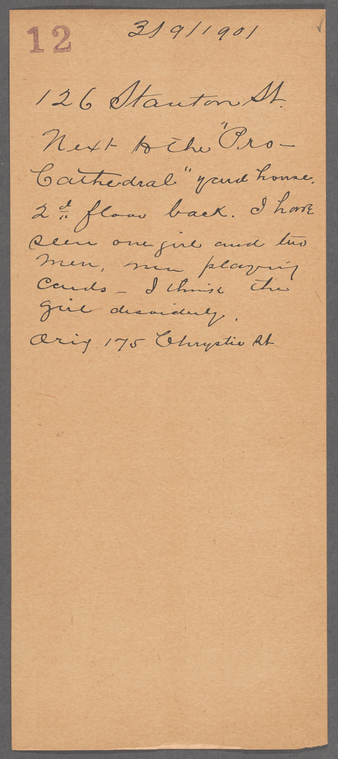 12
3/9/1901
126 Stanton St.
Next to the "Pro-
Cathedral" yard house.
2d floor back. I have
seen one girl and two
men, men playing
cards - I think the
girl disorderly.
Orig 175 Chrystie St